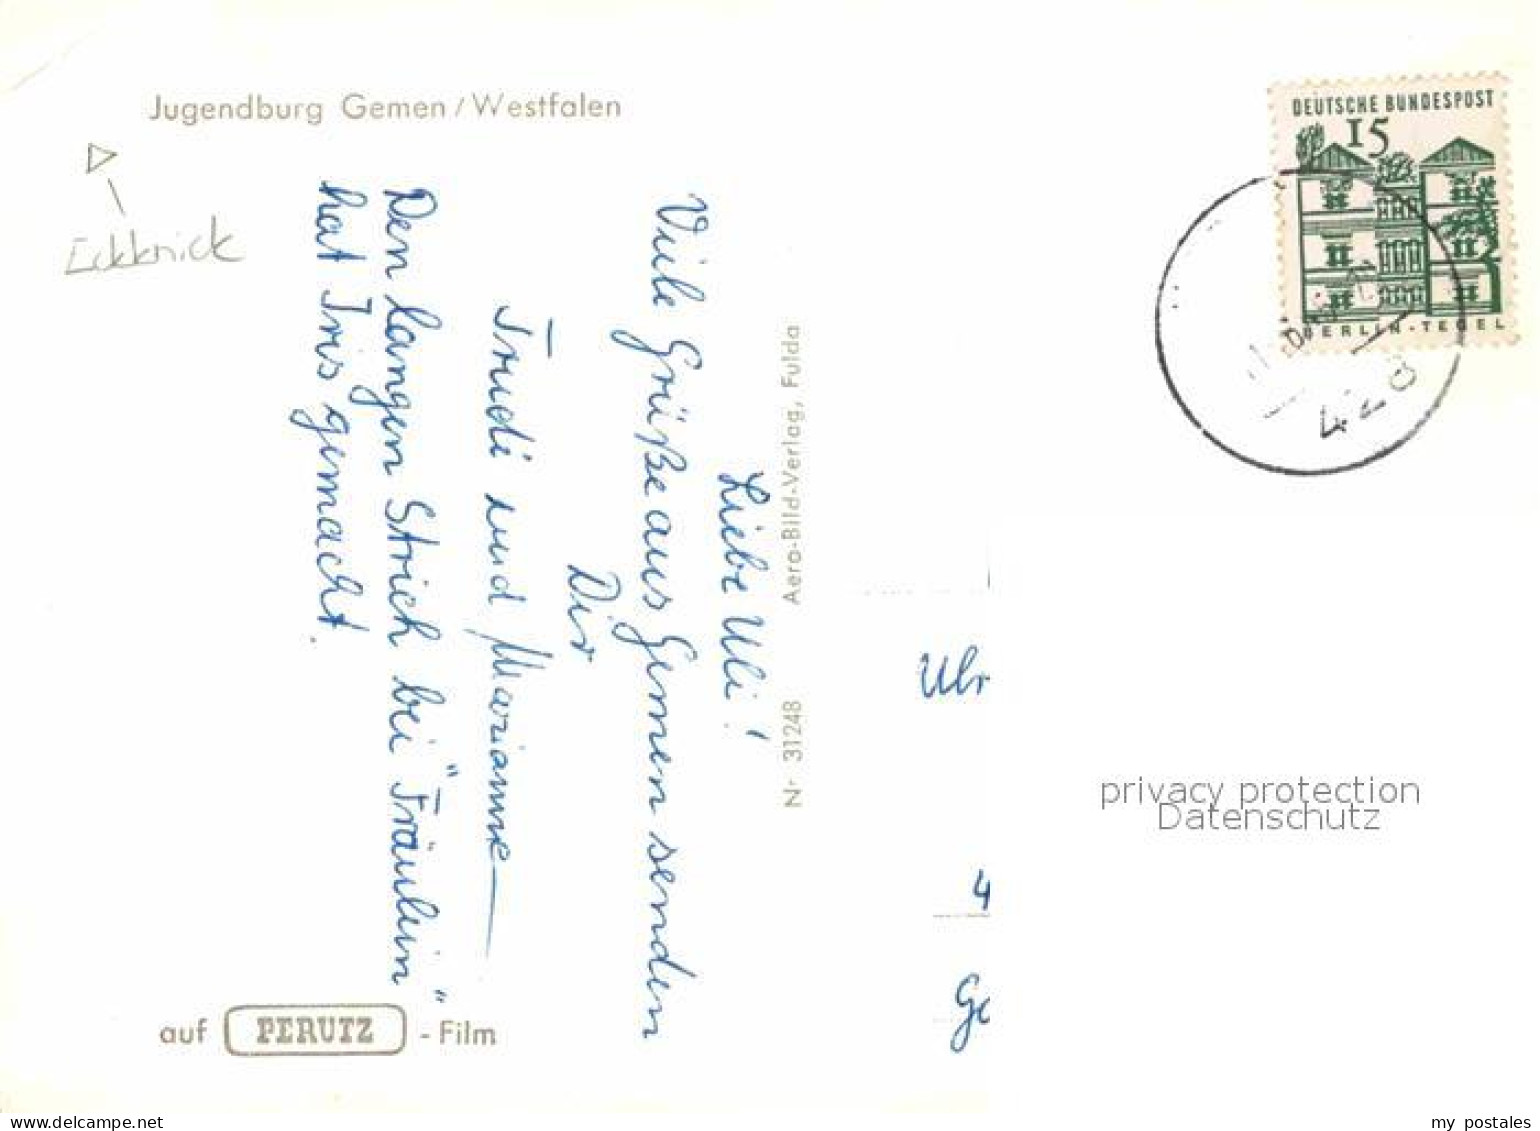 Jugendburg Gemen / Westfalen
Eckknick
Liebe Uli!
Viele Grüße aus Gemen senden
Dir
Trudi und Marianne
Den langen Strich bei "Fräulein"
hat Iris gemacht.
Nr 31248 Aero-Bild-Verlag, Fulda
auf PERUTZ - Film
DEUTSCHE BUNDESPOST
15
BERLIN-TEGEL
4280
4
privacy protection
Datenschutz
www.delcampe.net
my postales